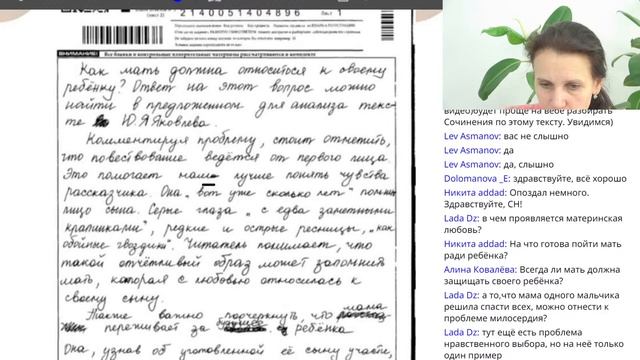 2140051404896
Лист 1
ВНИМАНИЕ! Все бланки и контрольные измерительные материалы рассматриваются в комплекте
Как мать должна относиться к своему
ребёнку? Ответ на этот вопрос можно
найти в предложенном для анализа текс-
те Ю.Я.Яковлева.
Комментируя проблему, стоит отметить,
что повествование ведётся от первого лица
Это помогает нам лучше понять чувства
рассказчика. Она „вот уже сколько лет"
лицо сына. Серые глаза „с едва заметными
крапинками", редкие и острые ресницы, „как
обойные гвоздики". Читатель понимает, что
такой отчётливый образ может запомнить
мать, которая с любовью относилась к
своему сыну.
Также важно подчеркнуть, что мама
переживает за ребёнка
Она, узнав об уготовленной её сыну участи,
видео)будет проще на вебе разбирать
Сочинения по этому тексту. Увидимся)
Lev Asmanov: вас не слышно
Lev Asmanov: да
Lev Asmanov: да, слышно
Dolomanova _E: здравствуйте, всё хорошо
Никита addad: Опоздал немного.
Здравствуйте, СН!
Lada Dz: в чем проявляется материнская
любовь?
Никита addad: На что готова пойти мать
ради ребёнка?
Алина Ковалёва: Всегда ли мать должна
защищать своего ребёнка?
Lada Dz: а то,что мама одного мальчика
решила спасти всех, можно отнести к
проблеме милосердия?
Lada Dz: тут ещё есть проблема
нравственного выбора, но на неё только
один пример